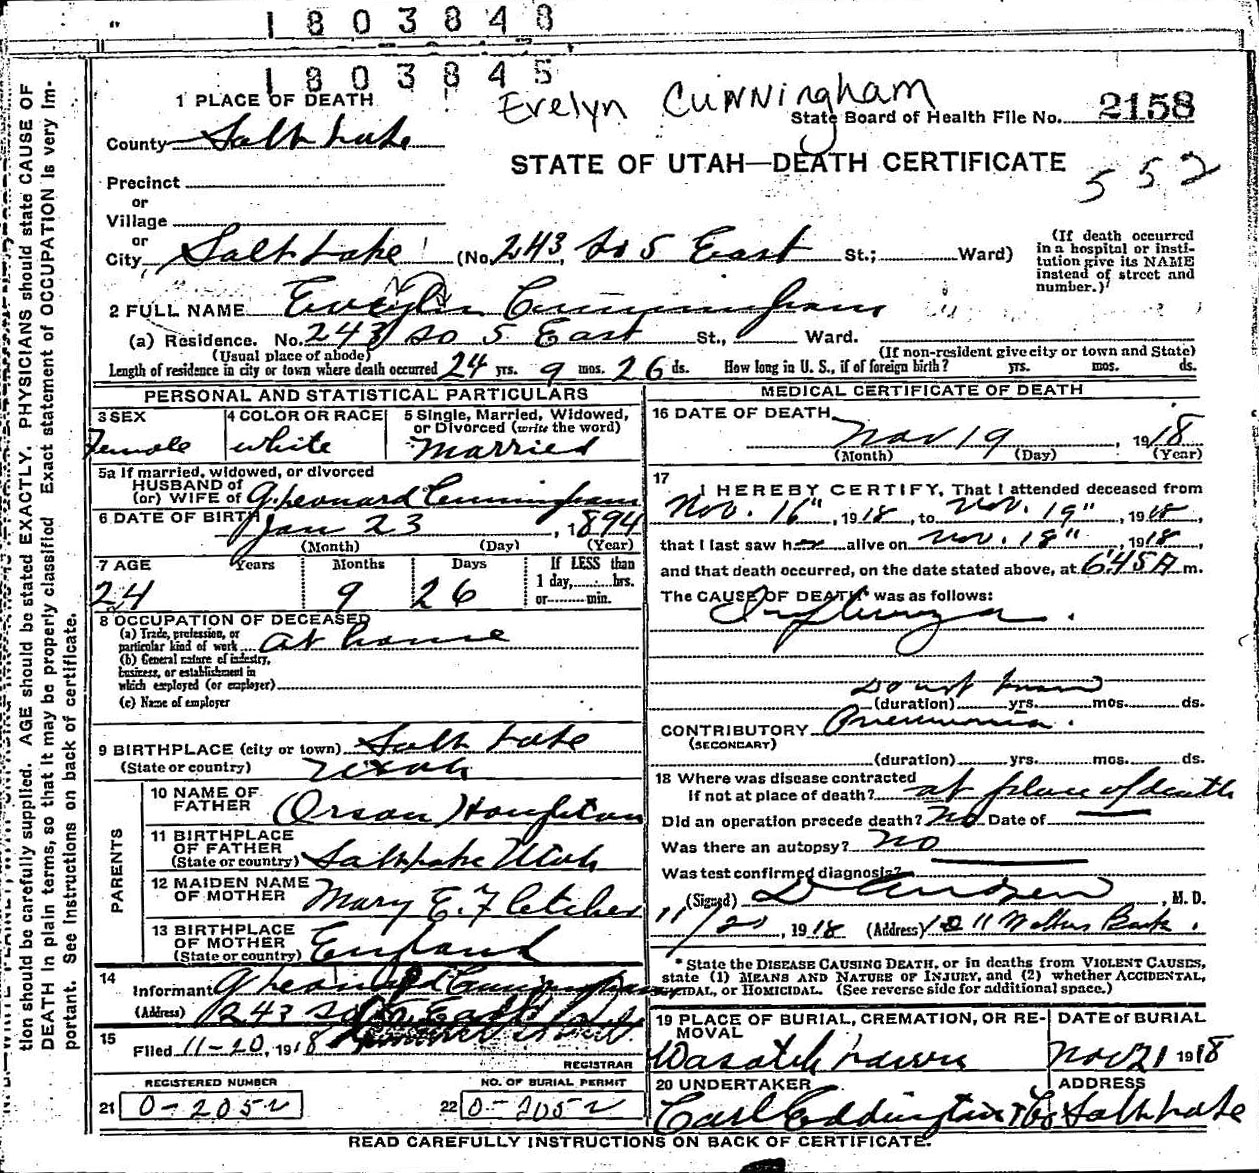 1803848
1803845
Evelyn Cunningham
State Board of Health File No. 2158
STATE OF UTAH—DEATH CERTIFICATE
552
1 PLACE OF DEATH
County Salt Lake
Precinct
or
Village
or
City Salt Lake (No. 243, So 5 East St.; Ward)
(If death occurred in a hospital or institution give its NAME instead of street and number.)
2 FULL NAME Evelyn Cunningham
(a) Residence. No. 243 So 5 East St., Ward.
(Usual place of abode) (If non-resident give city or town and State)
Length of residence in city or town where death occurred 24 yrs. 9 mos. 26 ds. How long in U. S., if of foreign birth? yrs. mos. ds.
PERSONAL AND STATISTICAL PARTICULARS
3 SEX
Female
4 COLOR OR RACE
white
5 Single, Married, Widowed, or Divorced (write the word)
Married
5a If married, widowed, or divorced
HUSBAND of
(or) WIFE of G. Leonard Cunningham
6 DATE OF BIRTH Jan 23, 1894
(Month) (Day) (Year)
7 AGE Years Months Days If LESS than
1 day,......hrs.
or......min.
24 9 26
8 OCCUPATION OF DECEASED
(a) Trade, profession, or
particular kind of work At home
(b) General nature of industry,
business, or establishment in
which employed (or employer)
(c) Name of employer
9 BIRTHPLACE (city or town) Salt Lake
(State or country) Utah
PARENTS
10 NAME OF
FATHER Orson Houghton
11 BIRTHPLACE
OF FATHER
(State or country) Salt Lake Utah
12 MAIDEN NAME
OF MOTHER Mary E. Fletcher
13 BIRTHPLACE
OF MOTHER
(State or country) England
14
Informant G Leonard Cunningham
(Address) 243 So 5 East
15
Filed 11-20, 1918
REGISTRAR
REGISTERED NUMBER
21 0-2052
NO. OF BURIAL PERMIT
22 0-2052
MEDICAL CERTIFICATE OF DEATH
16 DATE OF DEATH
Nov 19, 1918
(Month) (Day) (Year)
17
I HEREBY CERTIFY, That I attended deceased from
Nov. 16", 1918, to Nov. 19", 1918,
that I last saw her alive on Nov. 18", 1918,
and that death occurred, on the date stated above, at 645A m.
The CAUSE OF DEATH* was as follows:
Influenza.
Do not know
(duration) yrs. mos. ds.
CONTRIBUTORY Pneumonia.
(SECONDARY)
(duration) yrs. mos. ds.
18 Where was disease contracted
If not at place of death? at place of death
Did an operation precede death? No Date of
Was there an autopsy? No
Was test confirmed diagnosis?
(Signed) , M. D.
11/20, 1918 (Address) Bank.
* State the DISEASE CAUSING DEATH, or in deaths from VIOLENT CAUSES,
state (1) MEANS AND NATURE OF INJURY, and (2) whether ACCIDENTAL,
CIDAL, or HOMICIDAL. (See reverse side for additional space.)
19 PLACE OF BURIAL, CREMATION, OR RE-
MOVAL
Wasatch Lawn
DATE of BURIAL
Nov 21 1918
20 UNDERTAKER
Carl Eddington Co
ADDRESS
Salt Lake
READ CAREFULLY INSTRUCTIONS ON BACK OF CERTIFICATE.
tion should be carefully supplied. AGE should be stated EXACTLY. PHYSICIANS should state CAUSE OF
DEATH in plain terms, so that it may be properly classified Exact statement of OCCUPATION is very im-
portant. See Instructions on back of certificate.